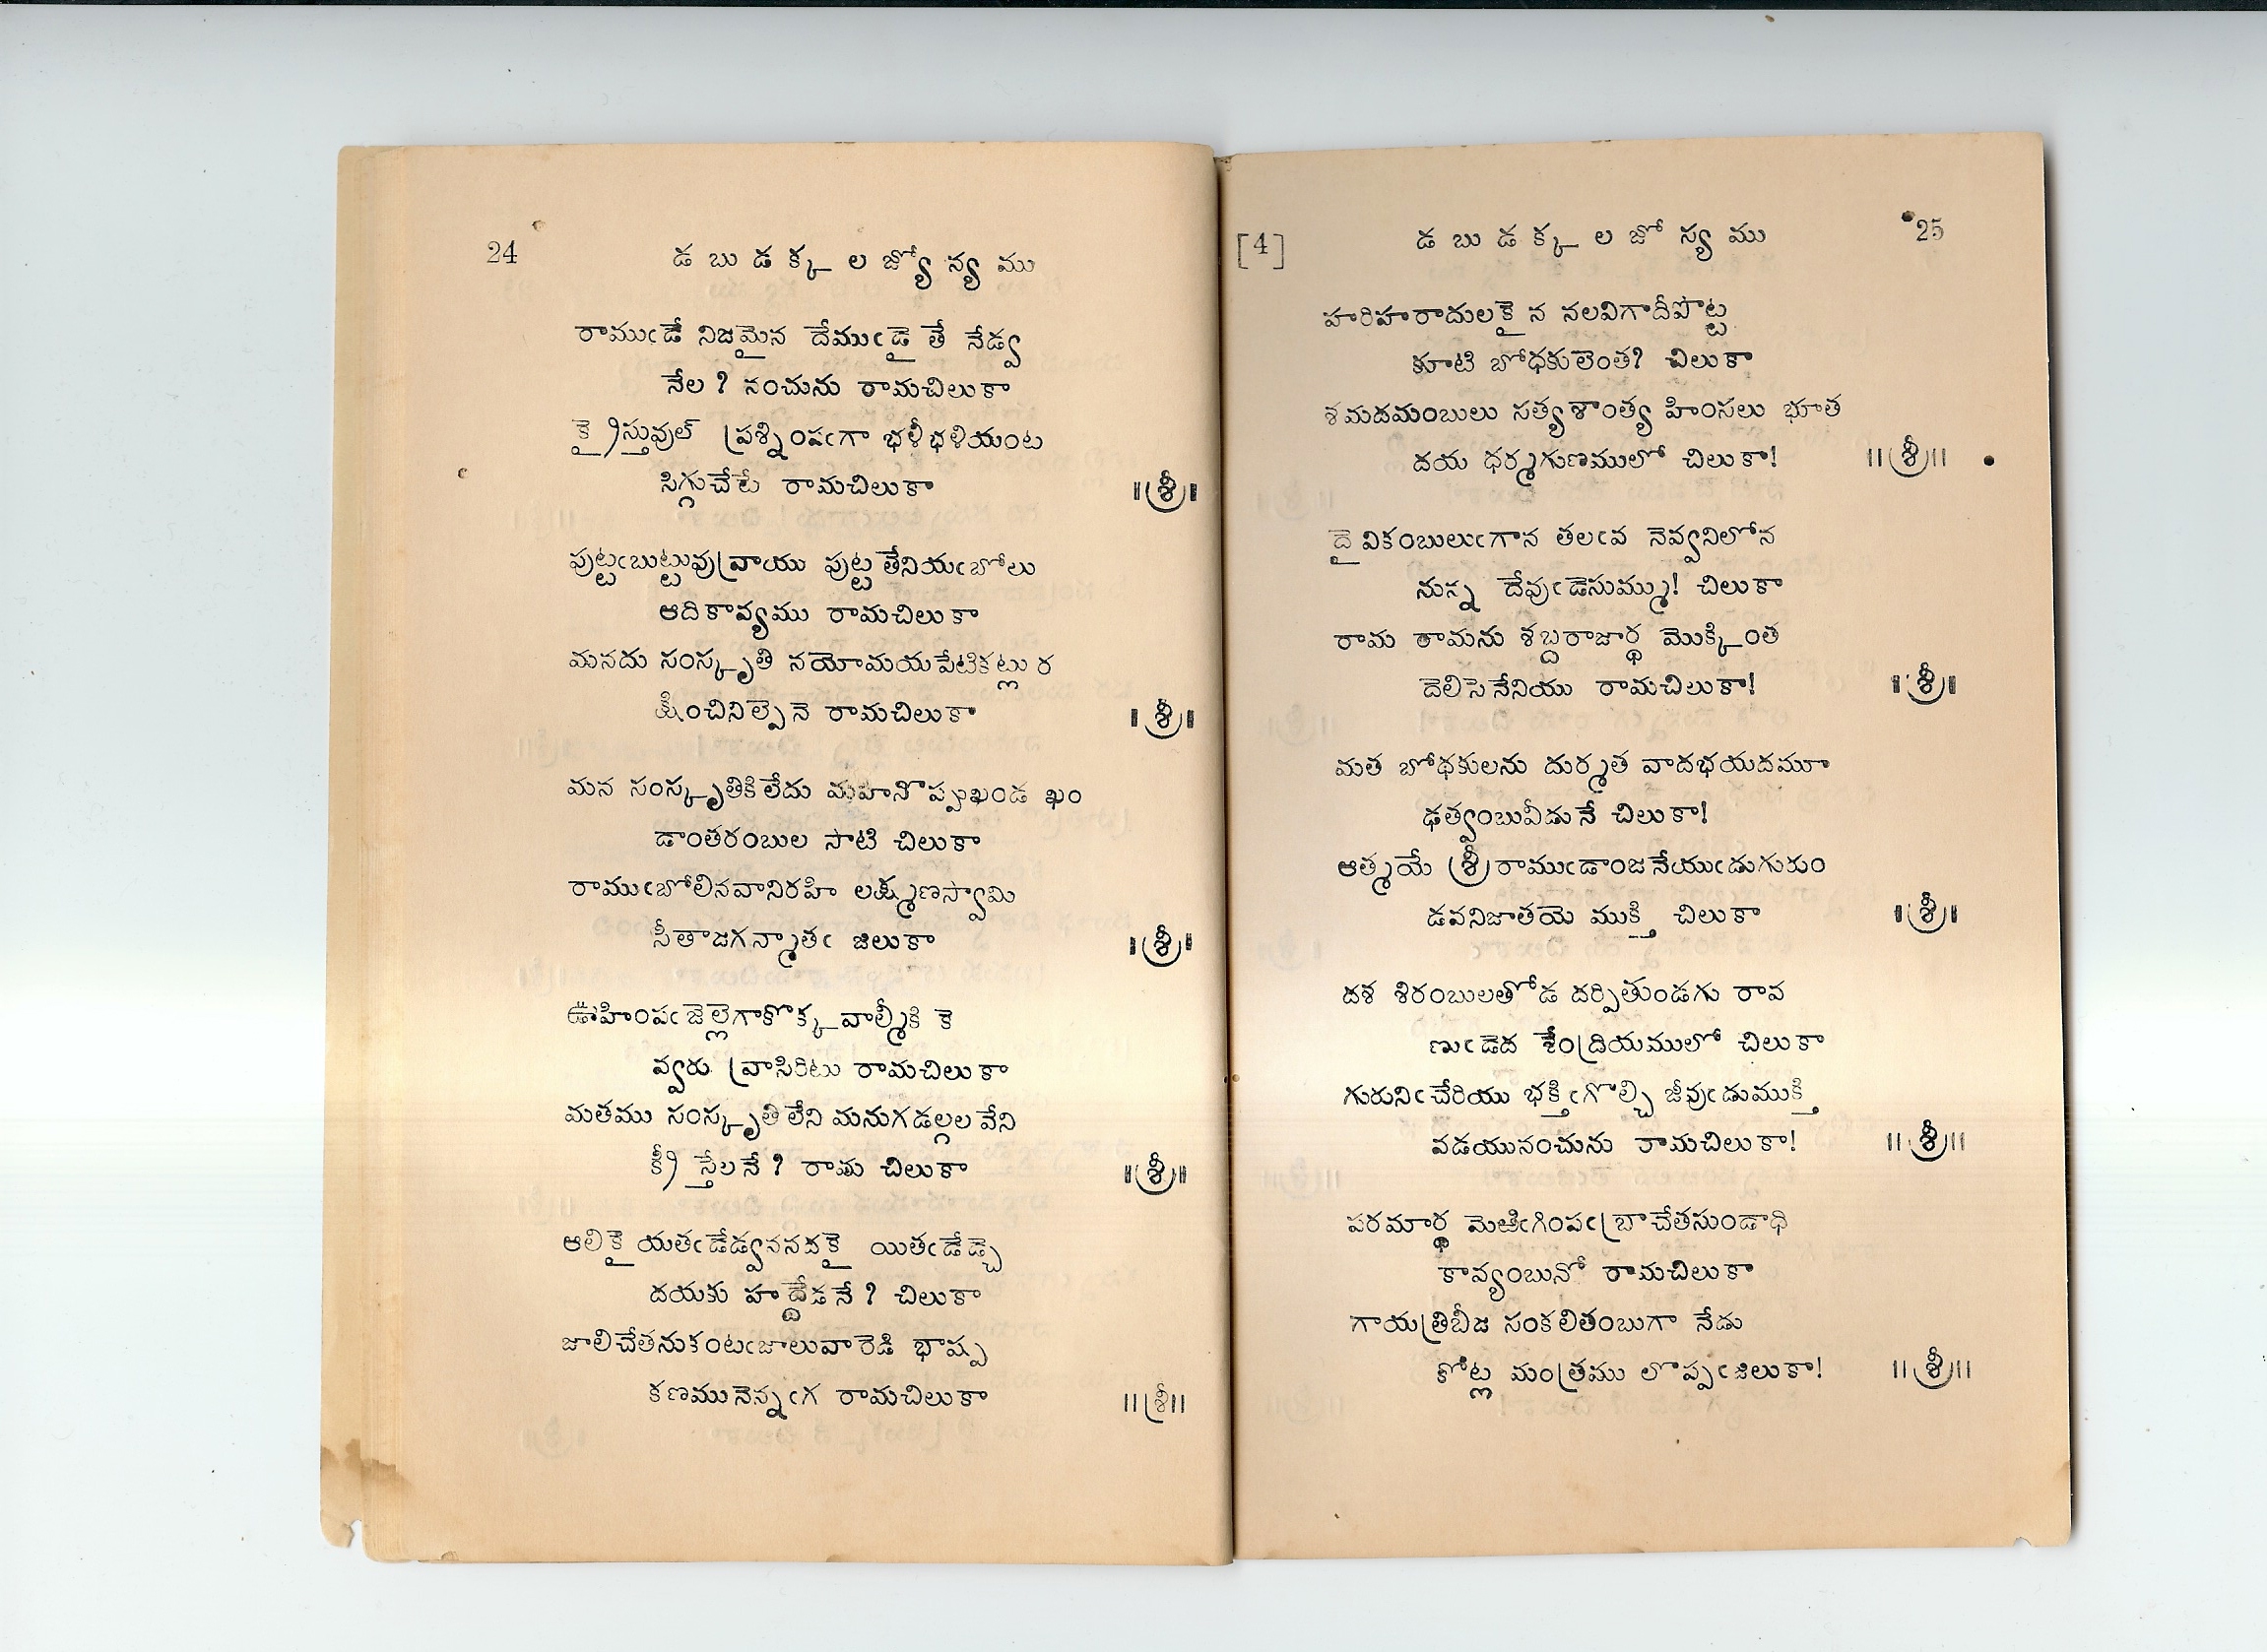 24
డ బు డ క్క ల జ్యో స్య ము
రాముఁడే నిజమైన దేముఁడై తే నేడ్వ
నేల ? నంచును రామచిలుకా
క్రైస్తవుల్ ప్రశ్నింపఁగా భళీభళియంట
సిగ్గుచేటే రామచిలుకా ॥శ్రీ॥
పుట్టఁబుట్టువువ్రాయు పుట్ట తేనియఁబోలు
ఆదికావ్యము రామచిలుకా
మనదు సంస్కృతి నయోమయపేటికట్లు ర
క్షించినిల్పెనె రామచిలుకా ॥శ్రీ॥
మన సంస్కృతికిలేదు మహినొప్పుఖండ ఖం
డాంతరంబుల సాటి చిలుకా
రాముఁబోలినవానిరహి లక్ష్మణస్వామి
సీతాజగన్మాతఁ జిలుకా ॥శ్రీ॥
ఊహింపఁ జెల్లెగాకొక్క వాల్మీకి కె
వ్వరు వ్రాసిరిటు రామచిలుకా
మతము సంస్కృతిలేని మనుగడల్గల వేని
క్రీ స్తేలనే ? రామ చిలుకా ॥శ్రీ॥
ఆలికై యతఁడేడ్వ యితఁడేడ్చె
దయకు హద్దేడనే ? చిలుకా
జాలిచేతనుకంటఁజాలువారెడి భాష్ప
కణమునెన్నఁగ రామచిలుకా ॥శ్రీ॥
[4] డ బు డ క్క ల జో స్య ము 25
హరిహరాదులకై న నలవిగాదీపొట్ట
కూటి బోధకులెంత? చిలుకా
శమదమంబులు సత్యశాంత్య హింసలు భూత
దయ ధర్మగుణములో చిలుకా! ॥శ్రీ॥
దై వికంబులుఁగాన తలఁవ నెవ్వనిలోన
నున్న దేవుఁడెసుమ్ము! చిలుకా
రామ రామను శబ్దరాజార్థ మొక్కింత
దెలిసెనేనియు రామచిలుకా! ॥శ్రీ॥
మత బోథకులను దుర్మత వాదభయదమూ
ఢత్వంబువీడునే చిలుకా!
ఆత్మయే శ్రీరాముఁడాంజనేయుఁడుగురుం
డవనిజాతయె ముక్తి చిలుకా ॥శ్రీ॥
దశ శిరంబులతోడ దర్పితుండగు రావ
ణుఁడెద శేంద్రియములో చిలుకా
గురునిఁచేరియు భక్తిఁగొల్చి జీవుఁడుముక్తి
వడయునంచును రామచిలుకా! ॥శ్రీ॥
పరమార్థ మెఱిఁగింపఁబ్రాచేతసుండాధి
కావ్యంబునో రామచిలుకా
గాయత్రిబీజ సంకలితంబుగా నేడు
కోట్ల మంత్రము లొప్పఁజిలుకా! ॥శ్రీ॥